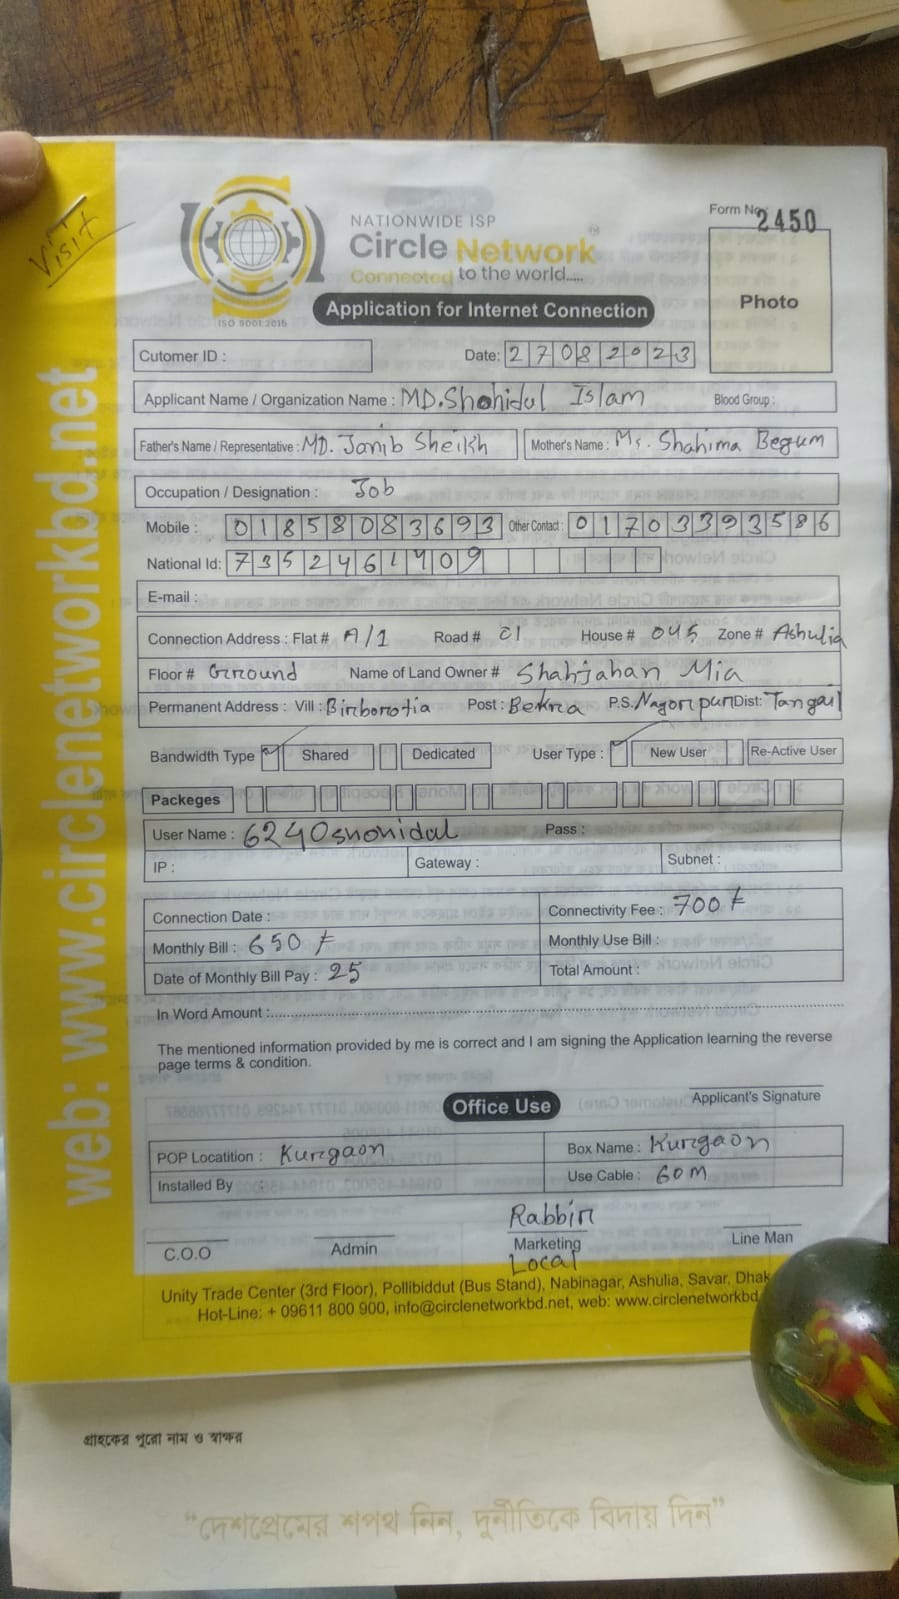 Visit
NATIONWIDE ISP
Circle Network™
Connected to the world.....
ISO 9001:2015
Form No: 2450
Photo
Application for Internet Connection
Cutomer ID :
Date: 27082023
Applicant Name / Organization Name : MD. Shahidul Islam Blood Group :
Father's Name / Representative : MD. Janib Sheikh Mother's Name : Ms. Shahima Begum
Occupation / Designation : Job
Mobile : 01858083693 Other Contact : 01703393586
National Id: 7352461409
E-mail :
Connection Address : Flat # A/1 Road # 01 House # 045 Zone # Ashulia
Floor # Ground Name of Land Owner # Shahjahan Mia
Permanent Address : Vill : Birborotia Post : Bekra P.S. Nagorpur Dist: Tangail
Bandwidth Type Shared Dedicated User Type : New User Re-Active User
Packeges
User Name : 6240shohidul Pass :
IP : Gateway : Subnet :
Connection Date : Connectivity Fee : 700 ৳
Monthly Bill : 650 ৳ Monthly Use Bill :
Date of Monthly Bill Pay : 25 Total Amount :
In Word Amount :
The mentioned information provided by me is correct and I am signing the Application learning the reverse
page terms & condition.
Applicant's Signature
Office Use
POP Locatition : Kurgaon Box Name : Kurgaon
Installed By : Use Cable : 60M
Rabbir
C.O.O Admin Marketing Line Man
Local
Unity Trade Center (3rd Floor), Pollibiddut (Bus Stand), Nabinagar, Ashulia, Savar, Dhak
Hot-Line: + 09611 800 900, info@circlenetworkbd.net, web: www.circlenetworkbd
web: www.circlenetworkbd.net
গ্রাহকের পুরো নাম ও স্বাক্ষর
“দেশপ্রেমের শপথ নিন, দুর্নীতিকে বিদায় দিন”